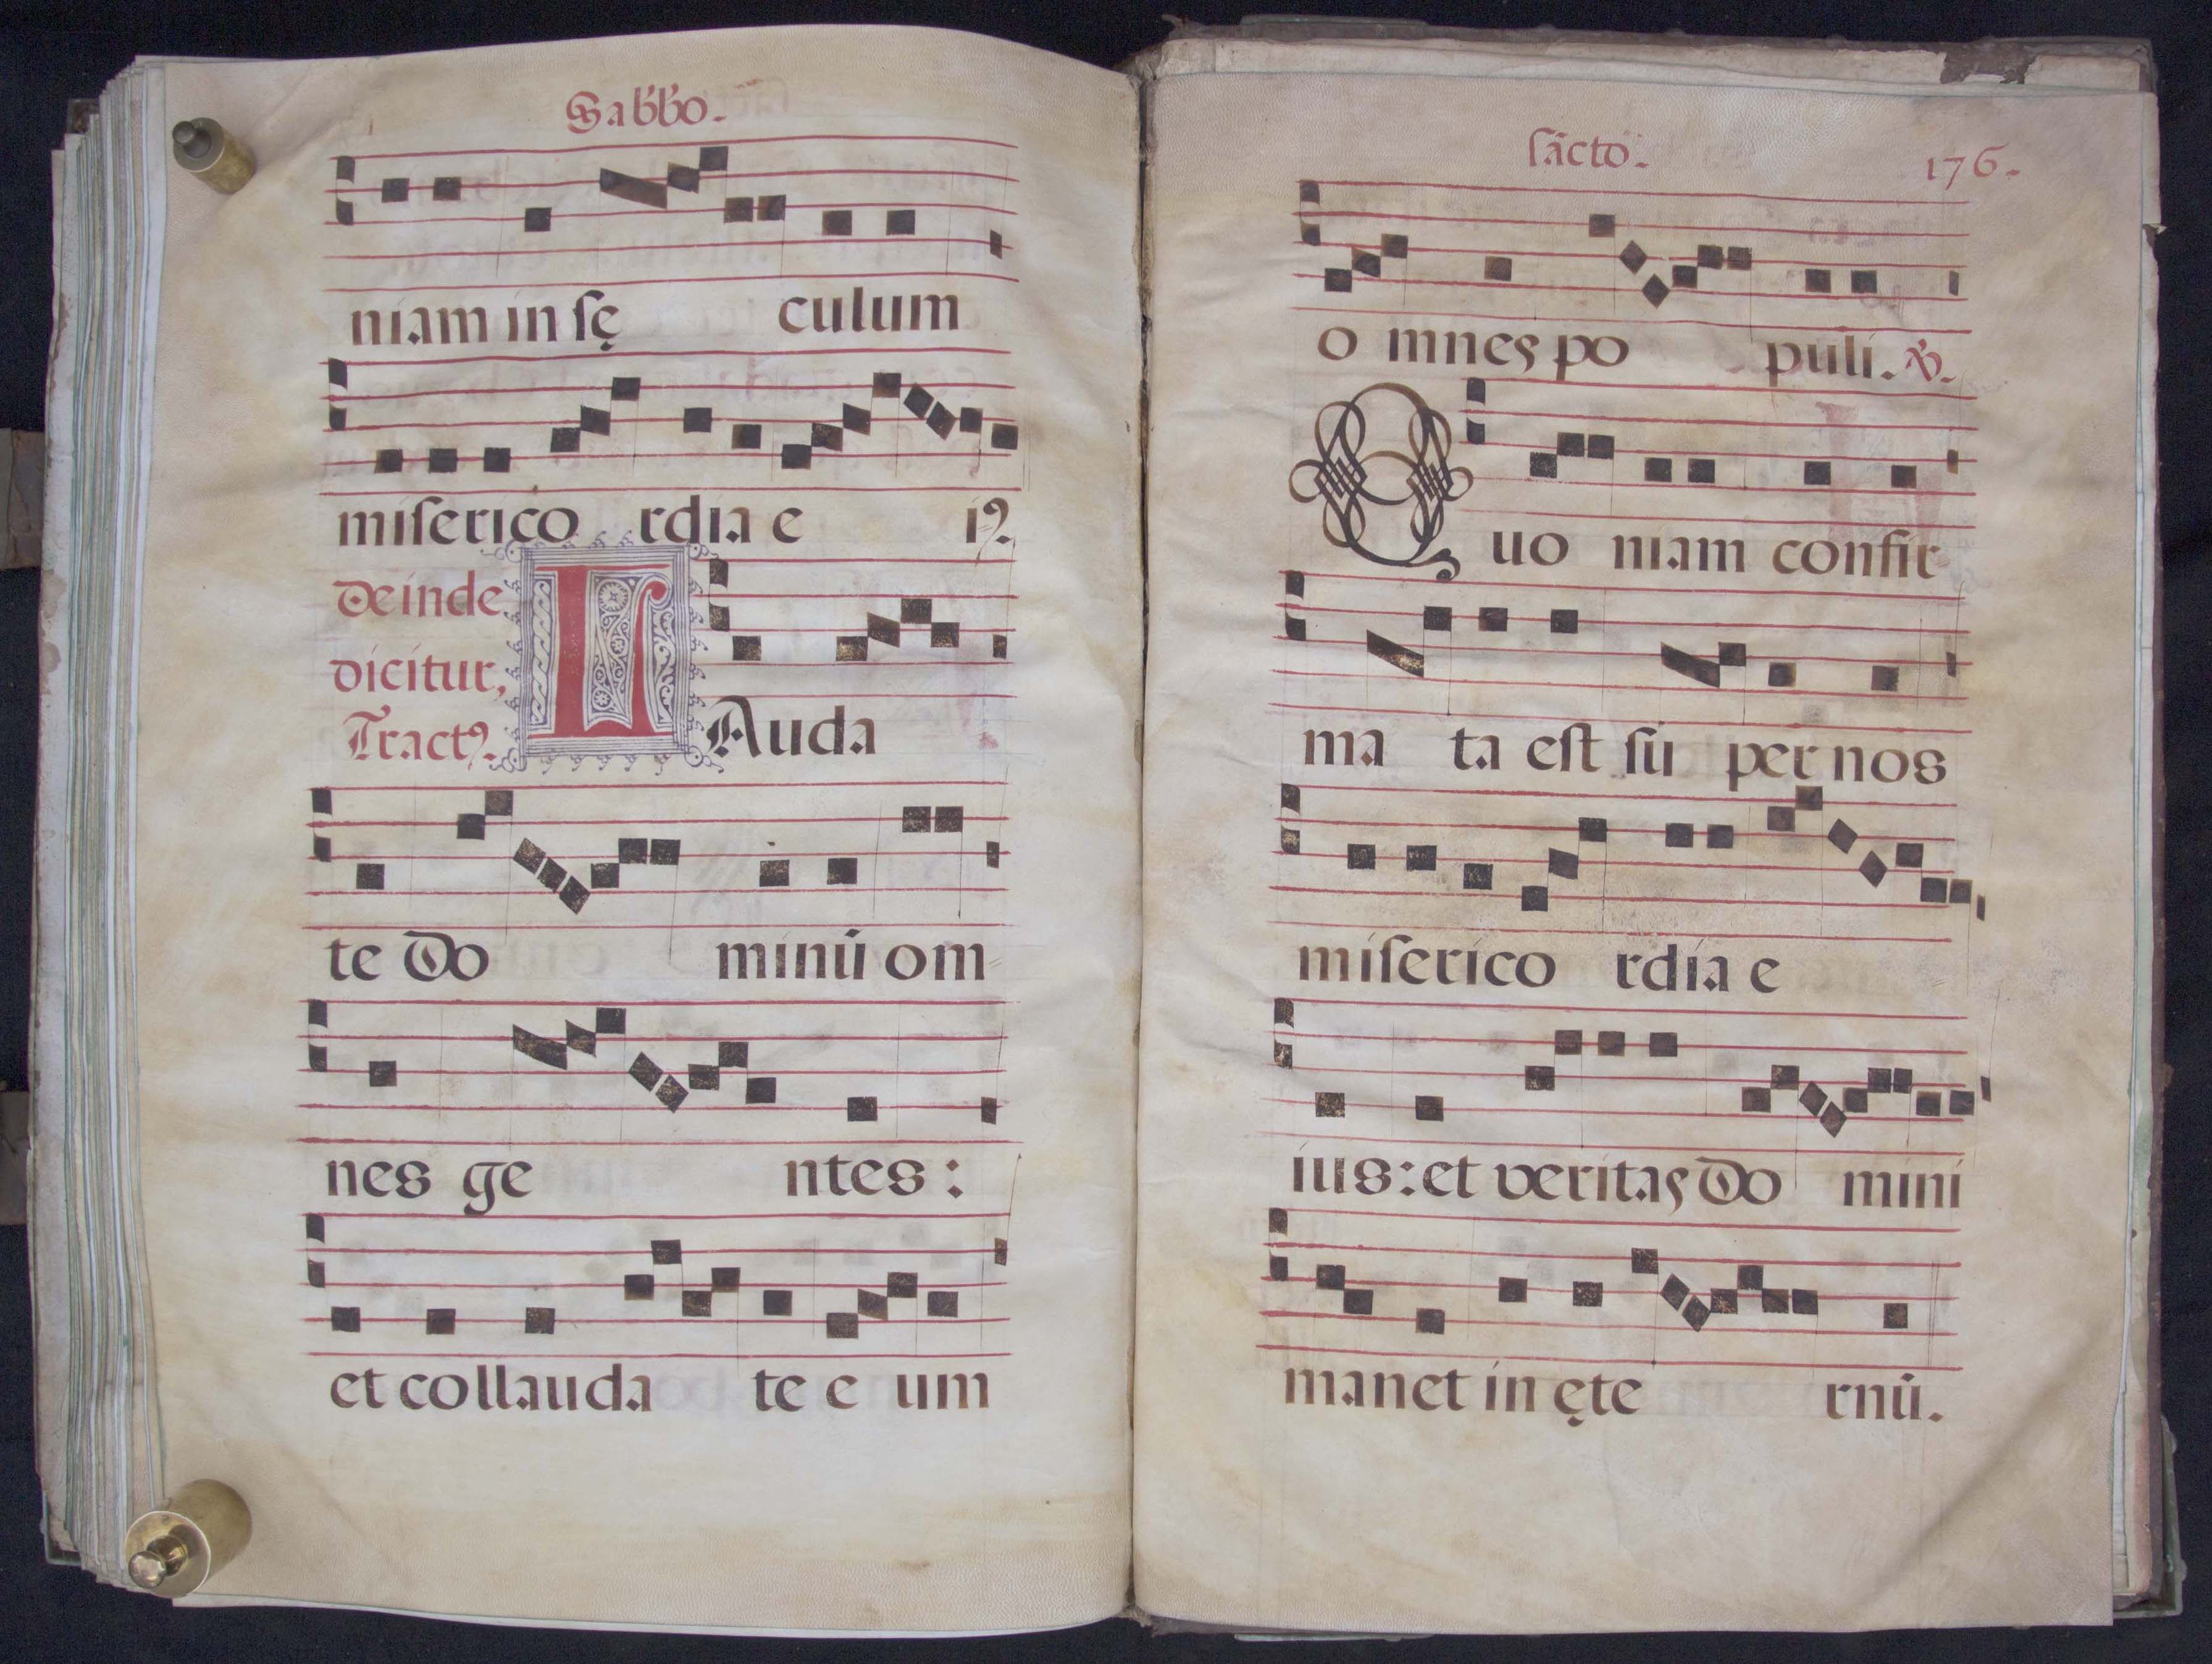 Sabb̃o.
niam in sę culum
miserico rdia e iꝰ
deinde
dicitur,
Tractꝰ.
LAuda
te Do minū om
nes ge ntes :
et collauda te e um
sācto.
176.
o mnes po puli. ℣.
Quo niam confir
ma ta est su per nos
miserico rdia e
ius: et veritas Do mini
manet in ęte rnū.